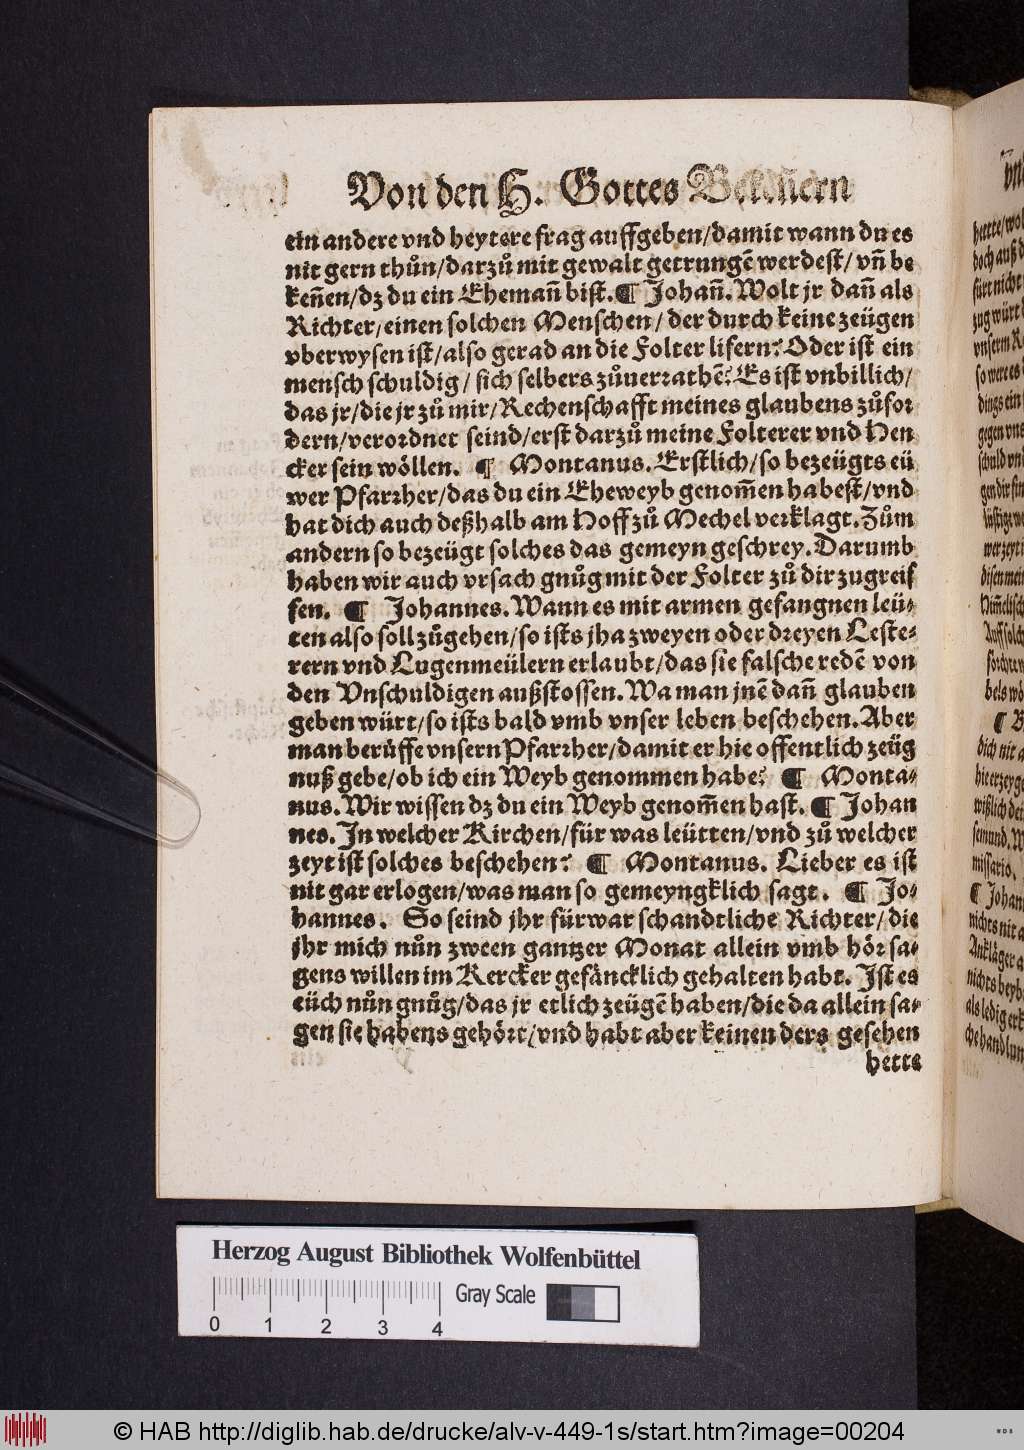 Von den H. Gottes Bekennern
ein andere vnd heytere frag auffgeben/damit wann du es
nit gern thůn/darzů mit gewalt getrungē werdest/vñ be
keñen/dz du ein Ehemañ bist.¶ Johañ. Wolt jr dañ als
Richter/einen solchen Menschen/der durch keine zeügen
vberwysen ist/also gerad an die Folter lifern? Oder ist ein
mensch schuldig/sich selbers zůuerrathē? Es ist vnbillich/
das jr/die jr zů mir/Rechenschafft meines glaubens zůfor
dern/verordnet seind/erst darzů meine Folterer vnd Hen
cker sein wöllen. ¶ Montanus. Erstlich/so bezeügts eü
wer Pfarrher/das du ein Eheweyb genom̃en habest/vnd
hat dich auch deßhalb am Hoff zů Mechel verklagt. Zům
andern so bezeügt solches das gemeyn geschrey. Darumb
haben wir auch vrsach gnůg mit der Folter zů dir zugreif
fen. ¶ Johannes. Wann es mit armen gefangnen leü-
ten also soll zůgehen/so ists jha zweyen oder dreyen Leste-
rern vnd Lugenmeülern erlaubt/das sie falsche redē von
den Vnschuldigen außstossen. Wa man jnē dañ glauben
geben würt/so ists bald vmb vnser leben beschehen. Aber
man berůffe vnsern Pfarrher/damit er hie offentlich zeüg
nuß gebe/ob ich ein Weyb genommen habe? ¶ Monta-
nus. Wir wissen dz du ein Weyb genom̃en hast. ¶ Johan
nes. In welcher Kirchen/für was leütten/vnd zů welcher
zeyt ist solches beschehen? ¶ Montanus. Lieber es ist
nit gar erlogen/was man so gemeyngklich sagt. ¶ Jo-
hannes. So seind jhr fürwar schandtliche Richter/die
jhr mich nůn zween gantzer Monat allein vmb hör sa-
gens willen im Kercker gefäncklich gehalten habt. Ist es
eüch nůn gnůg/das jr etlich zeügē haben/die da allein sa-
gen sie habens gehört/vnd habt aber keinen ders gesehen
hette
Herzog August Bibliothek Wolfenbüttel
Gray Scale
0 1 2 3 4
© HAB http://diglib.hab.de/drucke/alv-v-449-1s/start.htm?image=00204